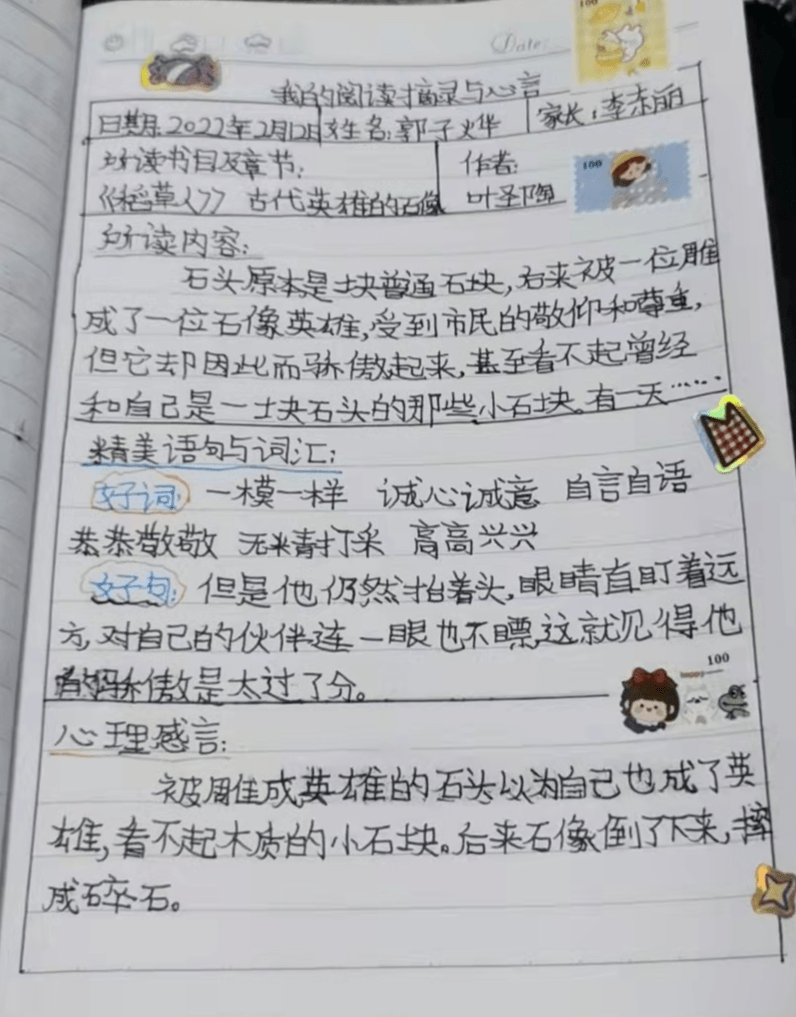 Date:
100
我的阅读摘录与心言
日期:2022年2月12日 姓名:郭子烨 家长:李赤丽
所读书目及章节: 作者:
《稻草人》 古代英雄的石像 叶圣陶
100
所读内容:
石头原本是块普通石块,后来被一位雕
成了一位石像英雄,受到市民的敬仰和尊重,
但它却因此而骄傲起来,甚至看不起曾经
和自己是一块石头的那些小石块。有一天……
精美语句与词汇:
好词: 一模一样 诚心诚意 自言自语
恭恭敬敬 无精打采 高高兴兴
好句: 但是他仍然抬着头,眼睛直盯着远
方,对自己的伙伴连一眼也不瞟,这就见得他
的骄傲是太过了分。
100
happy
心理感言:
被雕成英雄的石头以为自己也成了英
雄,看不起本质的小石块。后来石像倒了下来,摔
成碎石。